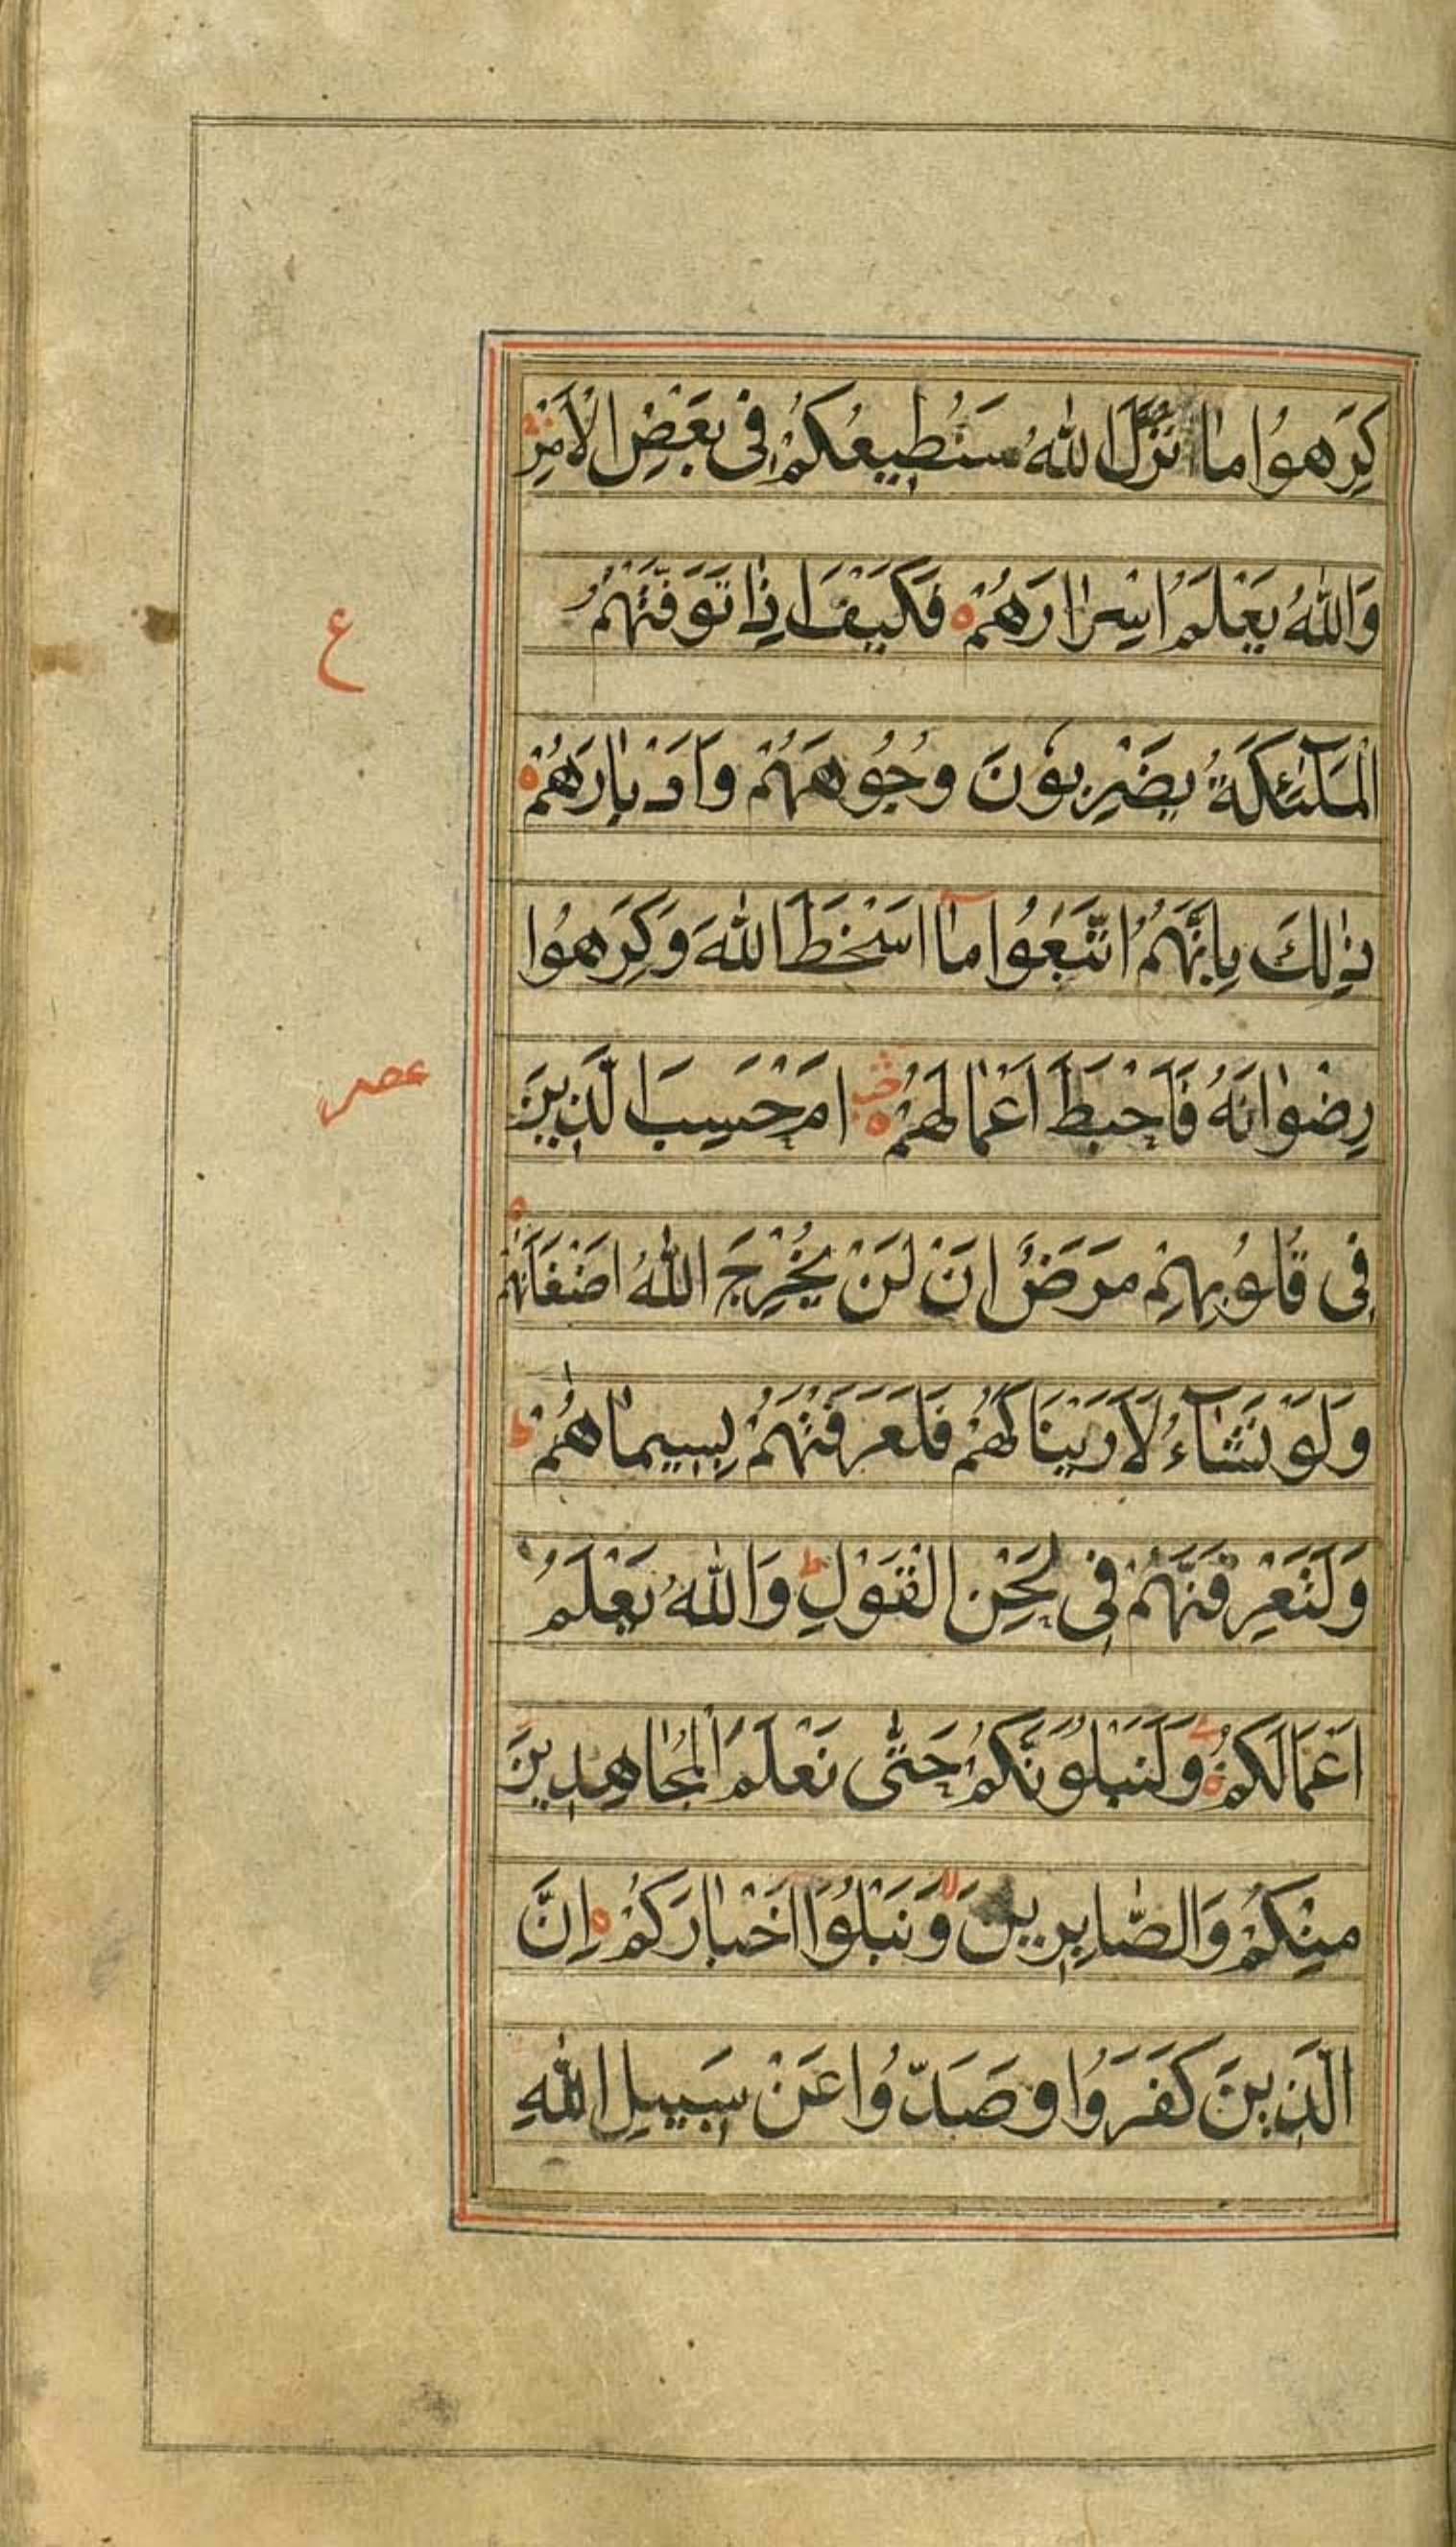 كَرِهُوا مَا نَزَّلَ اللهُ سَنُطِيعُكُمْ فِي بَعْضِ الْاَمْرِ
وَاللهُ يَعْلَمُ اِسْرَارَهُمْ فَكَيْفَ اِذَا تَوَفَّتْهُمُ
ع
الْمَلٰٓئِكَةُ يَضْرِبُونَ وُجُوهَهُمْ وَاَدْبَارَهُمْ
ذٰلِكَ بِاَنَّهُمُ اتَّبَعُوا مَآ اَسْخَطَ اللهَ وَكَرِهُوا
رِضْوَانَهُ فَاَحْبَطَ اَعْمَالَهُمْ اَمْ حَسِبَ الَّذِينَ
فِي قُلُوبِهِمْ مَرَضٌ اَنْ لَنْ يُخْرِجَ اللهُ اَضْغَانَهُمْ
وَلَوْ نَشَآءُ لَاَرَيْنَاكَهُمْ فَلَعَرَفْتَهُمْ بِسِيمَاهُمْ
وَلَتَعْرِفَنَّهُمْ فِي لَحْنِ الْقَوْلِ وَاللهُ يَعْلَمُ
اَعْمَالَكُمْ وَلَنَبْلُوَنَّكُمْ حَتّٰى نَعْلَمَ الْمُجَاهِدِينَ
مِنْكُمْ وَالصَّابِرِينَ وَنَبْلُوَا اَخْبَارَكُمْ اِنَّ
الَّذِينَ كَفَرُوا وَصَدُّوا عَنْ سَبِيلِ اللهِ